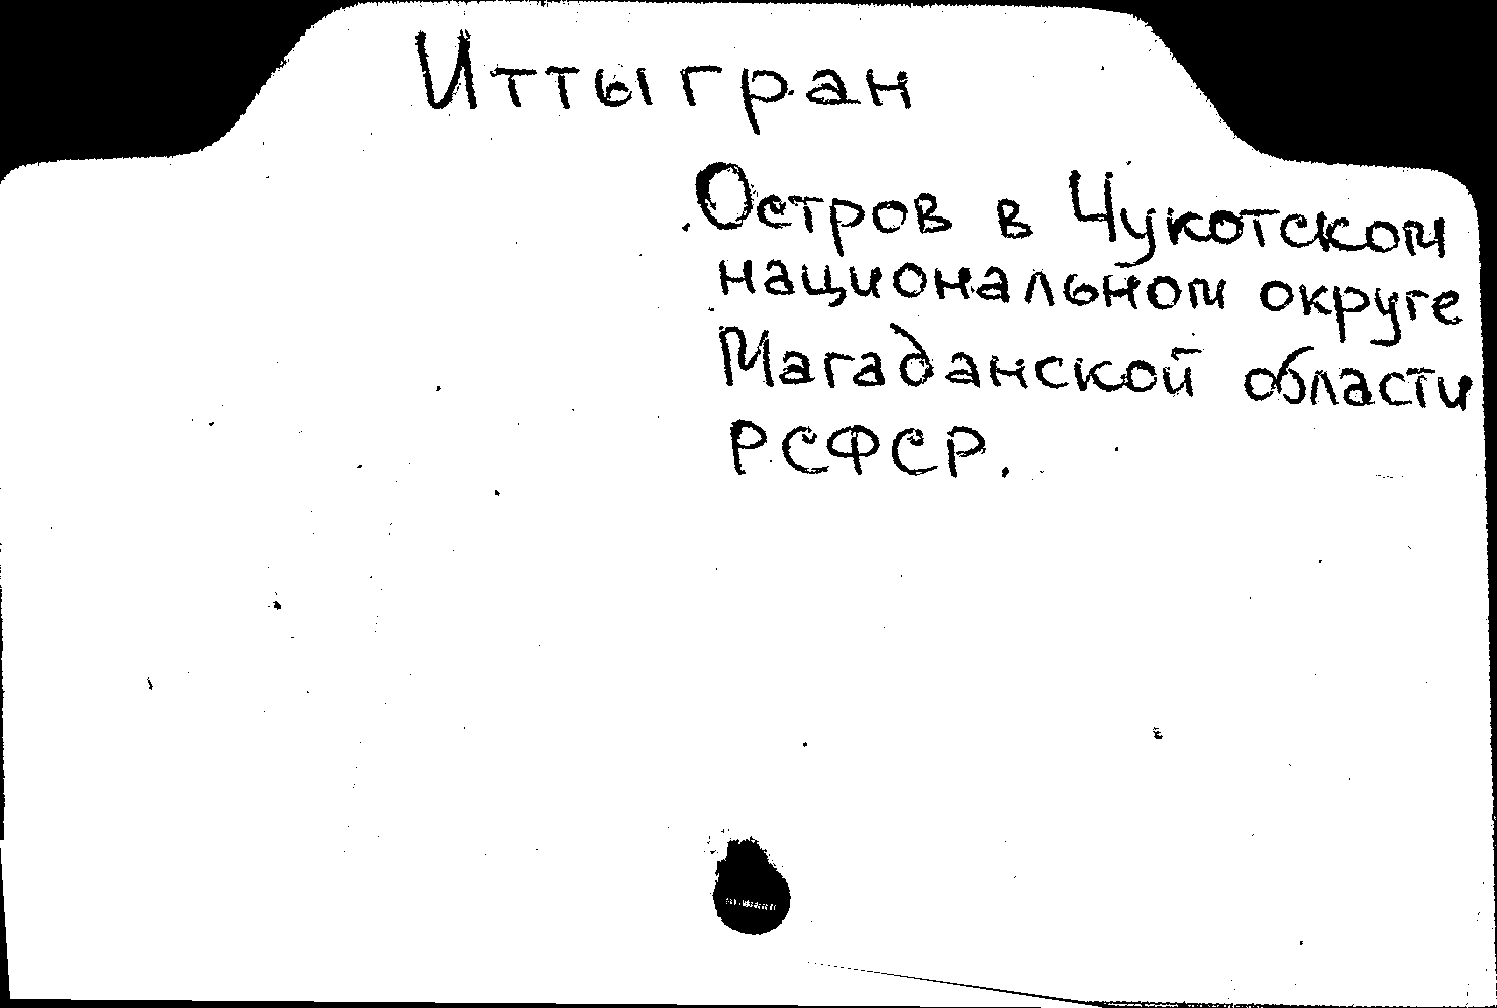 Иттыгран
Остров в Чукотском
национальном округе
Магаданской области
РСФСР.